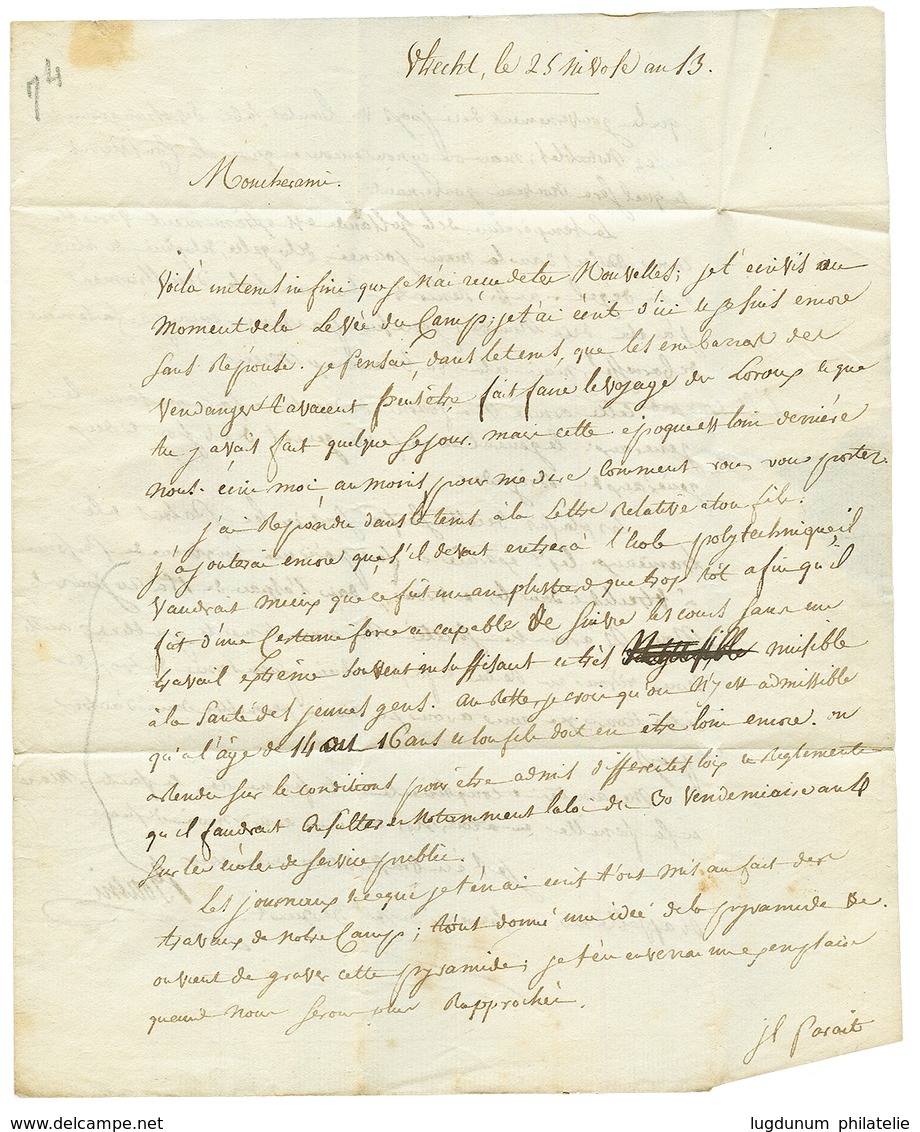 74
Utrecht, le 25 nivose an 13.
Mon cher ami.
Voilà un tems infini que je n'ai reçu de tes Nouvelles; je t'écrivis au
moment de la Levée du Camp; je t'ai écrit d'ici et je suis encore
sans Réponse. je pensai, dans le tems, que les embarras des
vendanges t'avaient peut être fait faire le voyage du Loroux et que
tu y avais fait quelque séjour. mais cette époque est loin derriére
nous. écris moi au moins pour me dire comment vous vous portez.
j'ai Répondu dans le tems à la Lettre Relative à ton fils.
j'ajouterai encore que s'il devait entrer à l'école polytechnique, il
vaudrait mieux que ce fut un an plus tard que trop tôt afin qu'il
fût d'une Certaine force et capable de suivre les cours sans un
travail extrême souvent insuffisant et très nuisible
à la santé des jeunes gens. au Reste je crois qu'on n'y est admissible
qu'à l'âge de 14 ou 16 ans et ton fils doit en être loin encore. on
a rendu sur les conditions pour être admis differentes loix et Reglements
qu'il faudrait Consulter et Notamment la loi du 30 vendemiaire an 4
sur les écoles de service public.
Les journaux et ce que je t'en ai écrit t'ont mis au fait des
travaux de Notre Camp; t'ont donné une idée de la pyramide &c.
on vient de graver cette pyramide; je t'en enverrai un exemplaire
quand nous serons plus Rapprochés.
il parait
www.delcampe.net
lugdunum philatelie